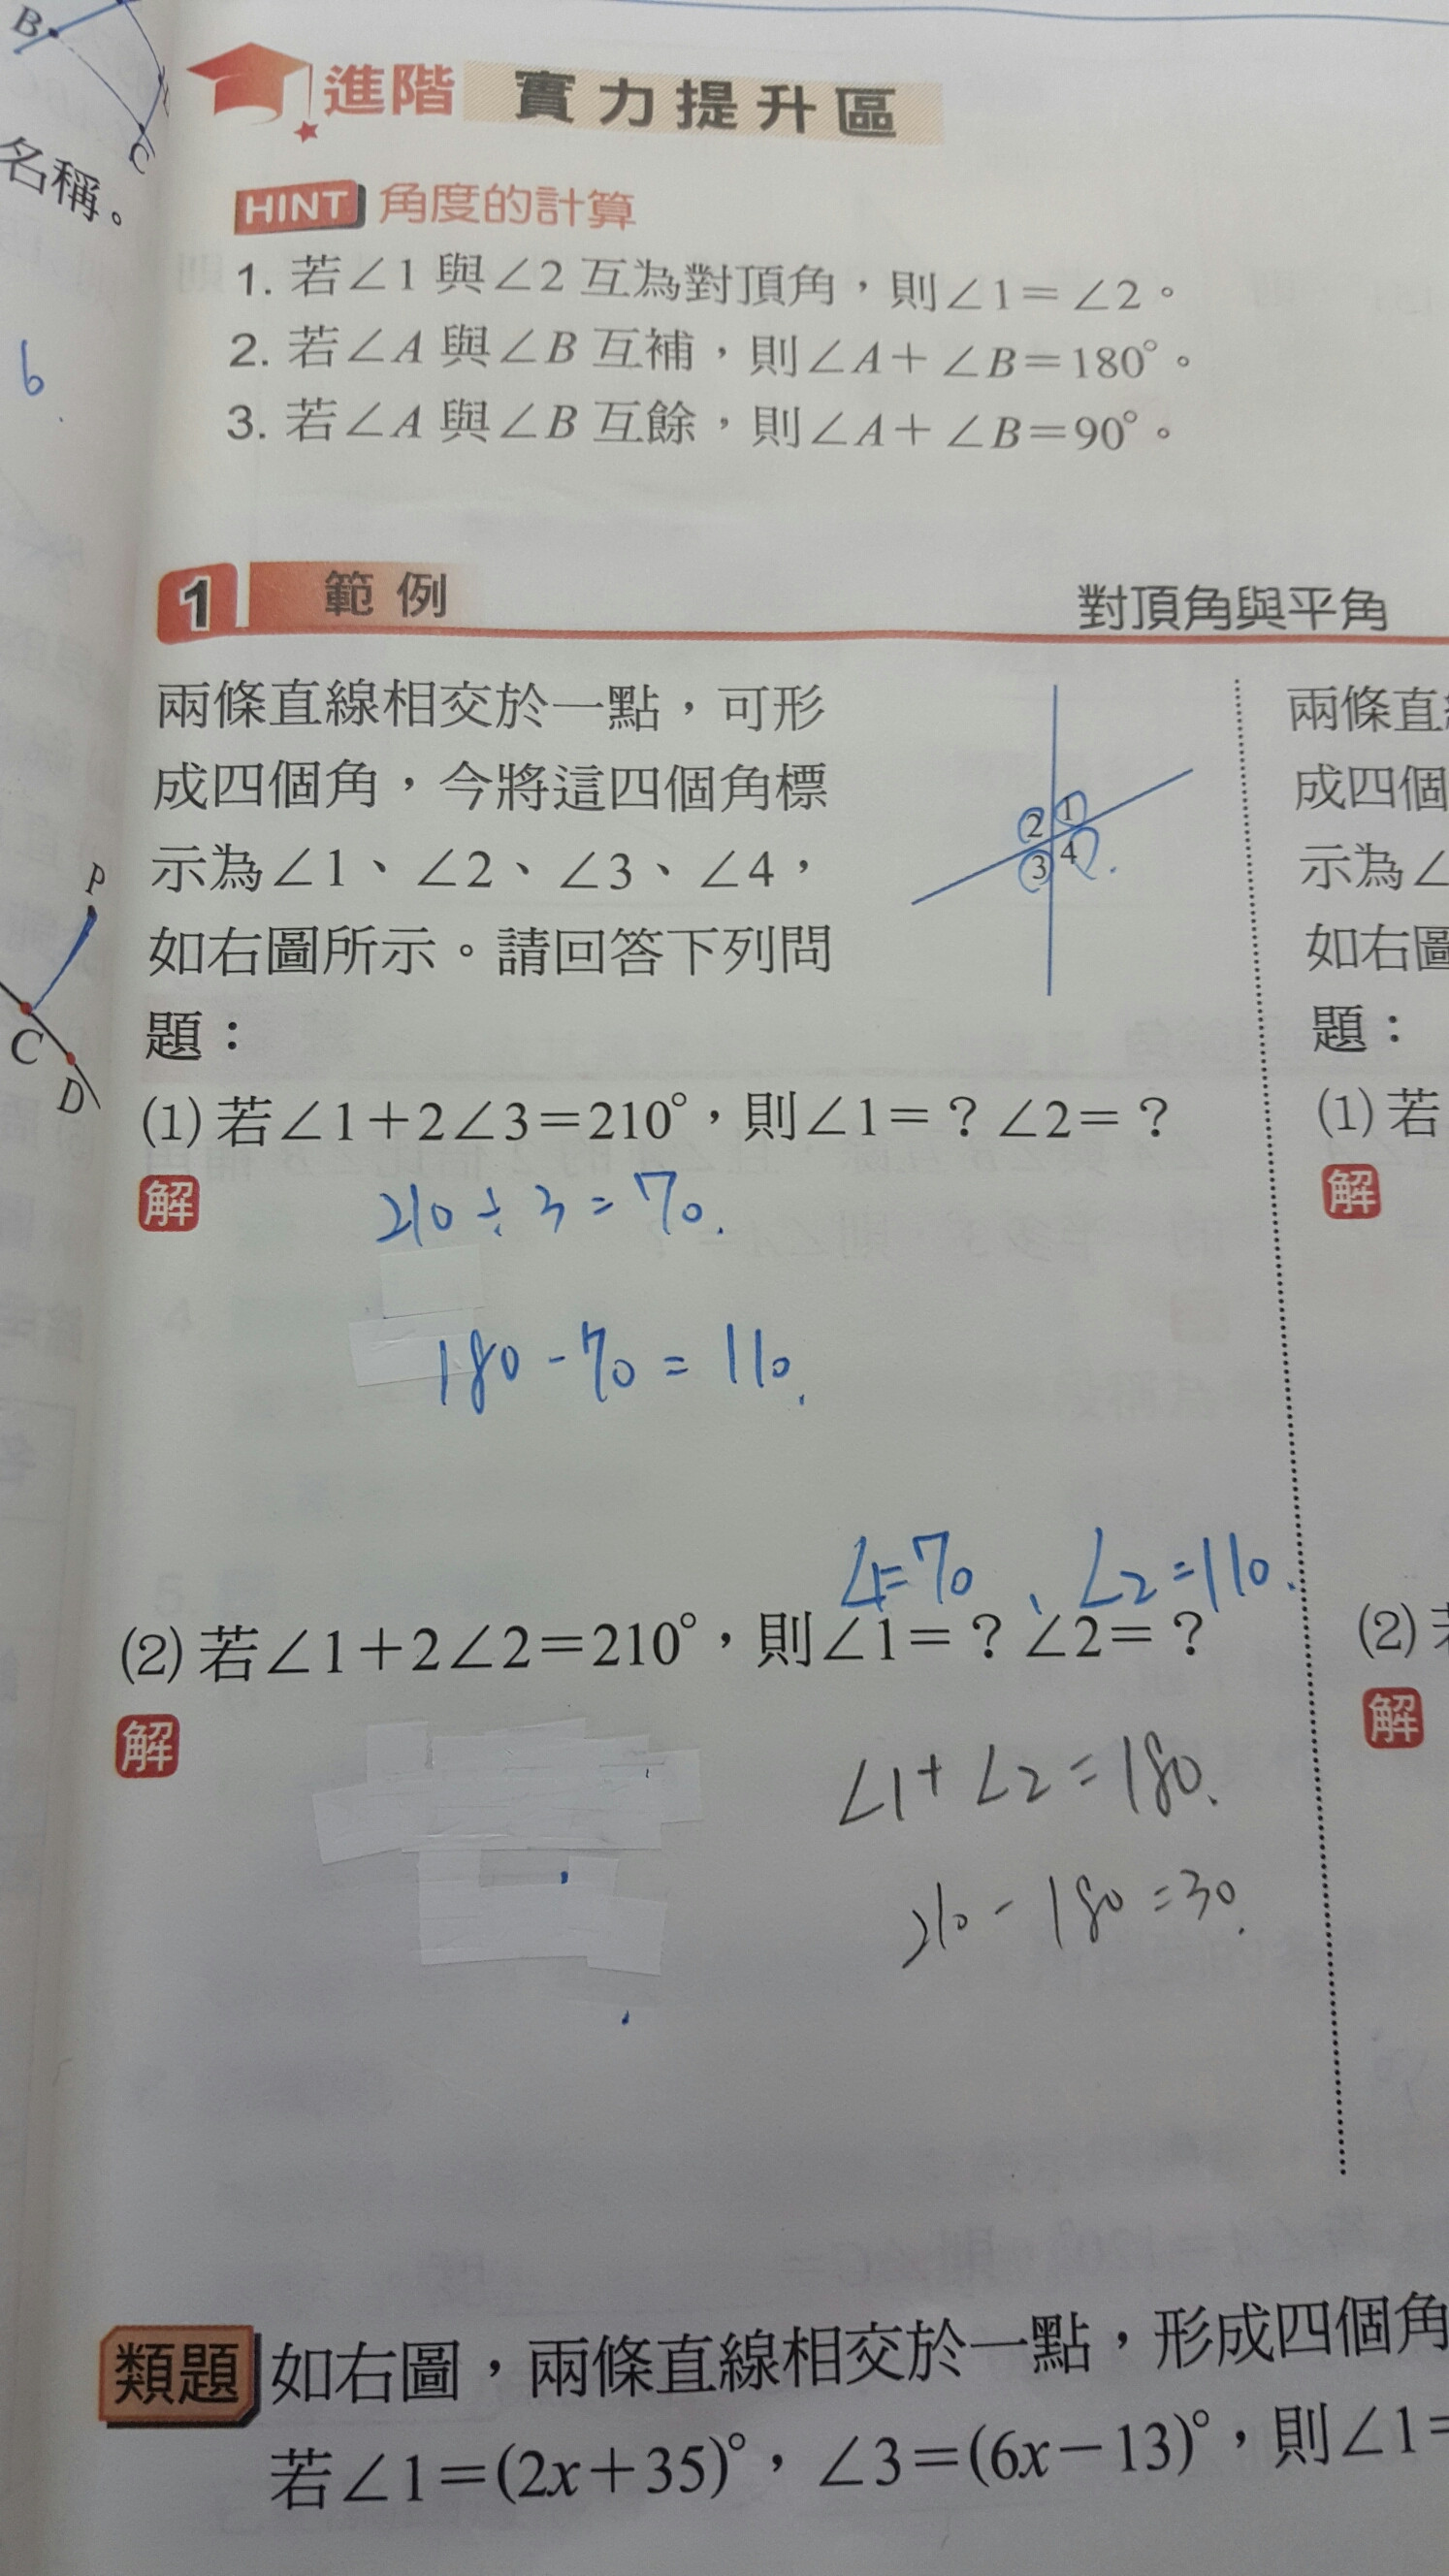 B
C
名稱。
6
進階 實力提升區
HINT 角度的計算
1. 若∠1與∠2互為對頂角，則∠1=∠2。
2. 若∠A與∠B互補，則∠A+∠B=180°。
3. 若∠A與∠B互餘，則∠A+∠B=90°。
1 範例 對頂角與平角
兩條直線相交於一點，可形
成四個角，今將這四個角標
示為∠1、∠2、∠3、∠4，
如右圖所示。請回答下列問
題：
2 1
3 4
P
C
D
(1) 若∠1+2∠3=210°，則∠1=？∠2=？
解
210÷3=70.
180-70=110.
∠1=70、∠2=110.
(2) 若∠1+2∠2=210°，則∠1=？∠2=？
解
∠1+∠2=180.
210-180=30.
兩條直
成四個
示為∠
如右圖
題：
(1) 若
解
(2)
解
類題 如右圖，兩條直線相交於一點，形成四個角
若∠1=(2x+35)°，∠3=(6x-13)°，則∠1=